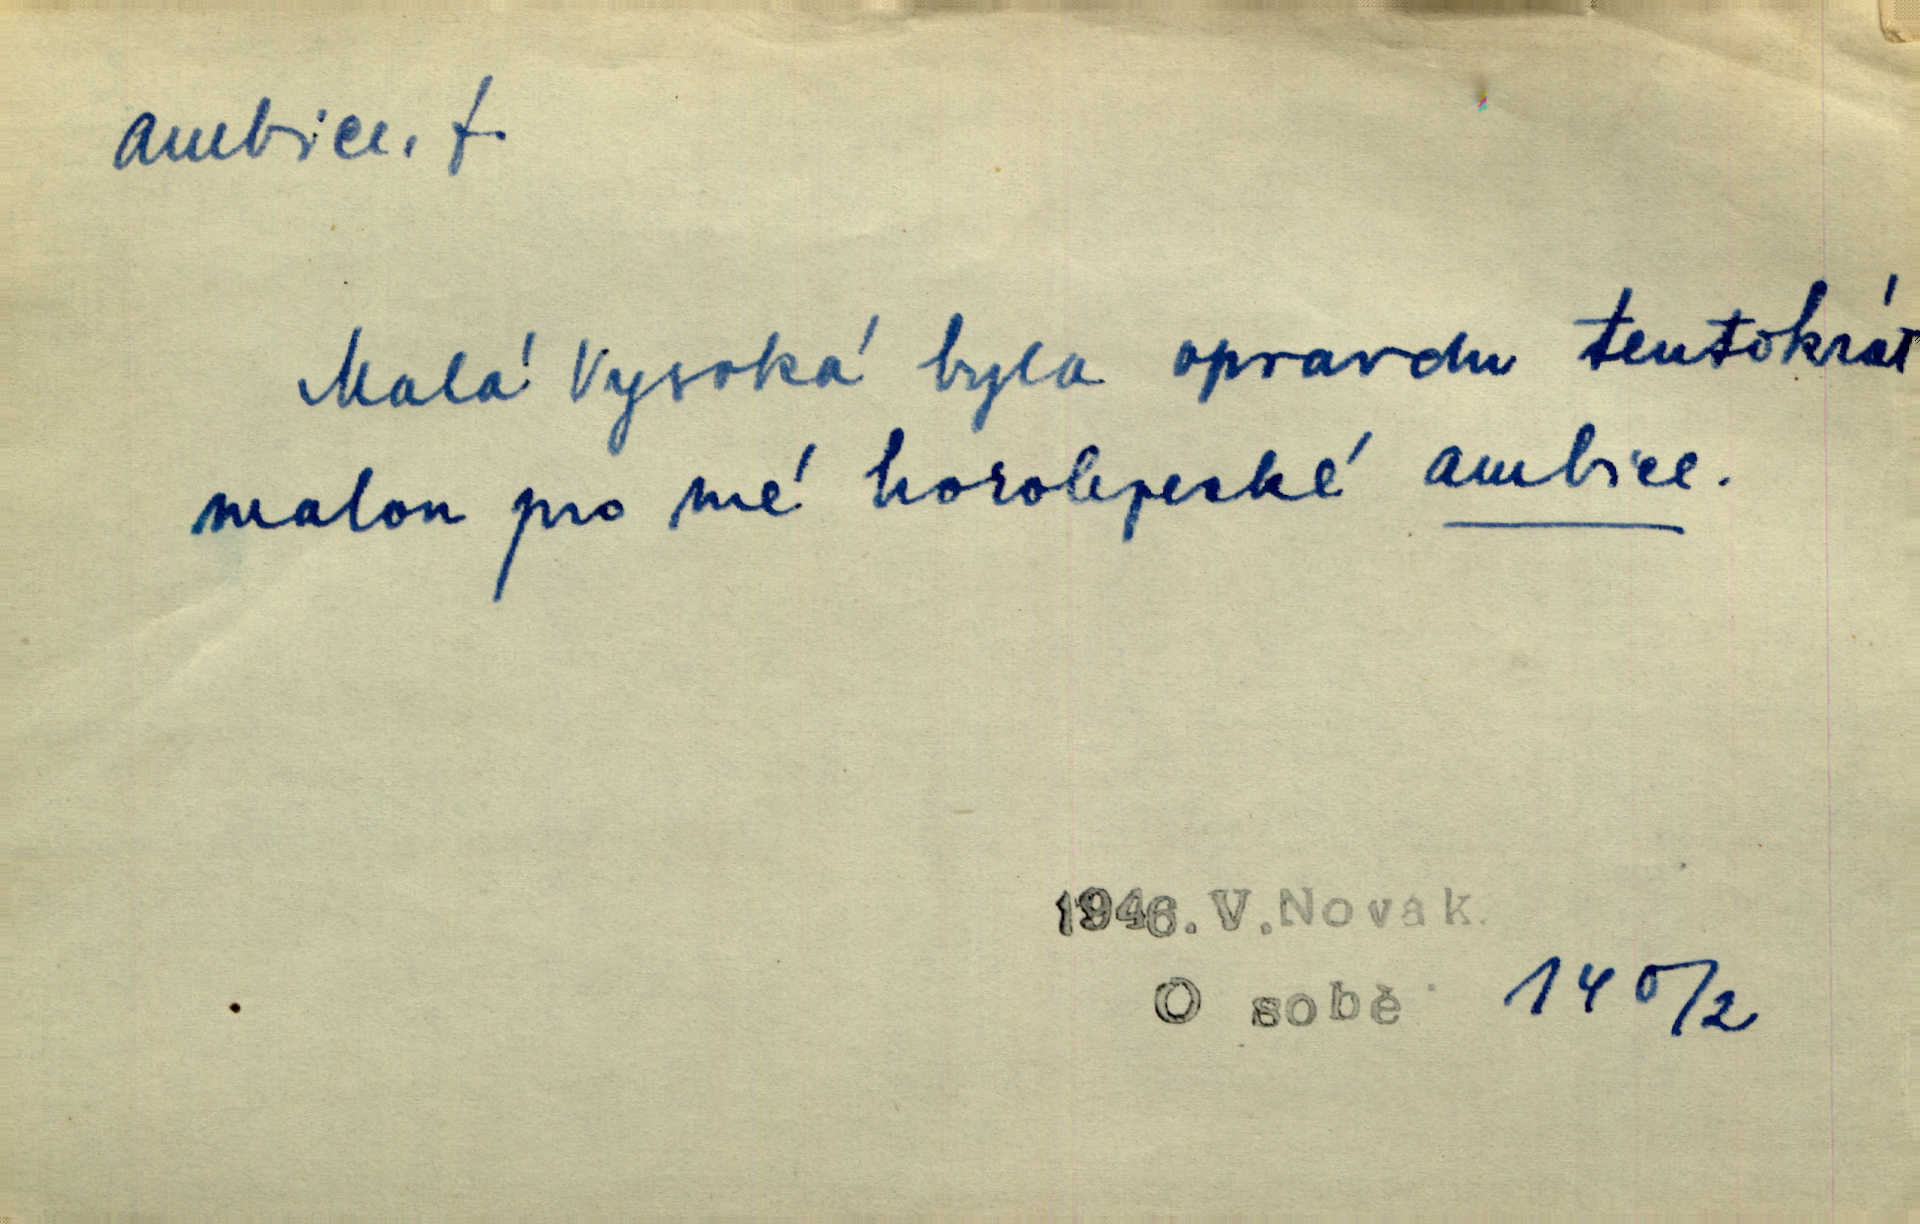 ambice, f.
Malá Vysoká byla opravdu tentokrát
malou pro mé horolezecké ambice.
1946. V. Novák
O sobě 140/2